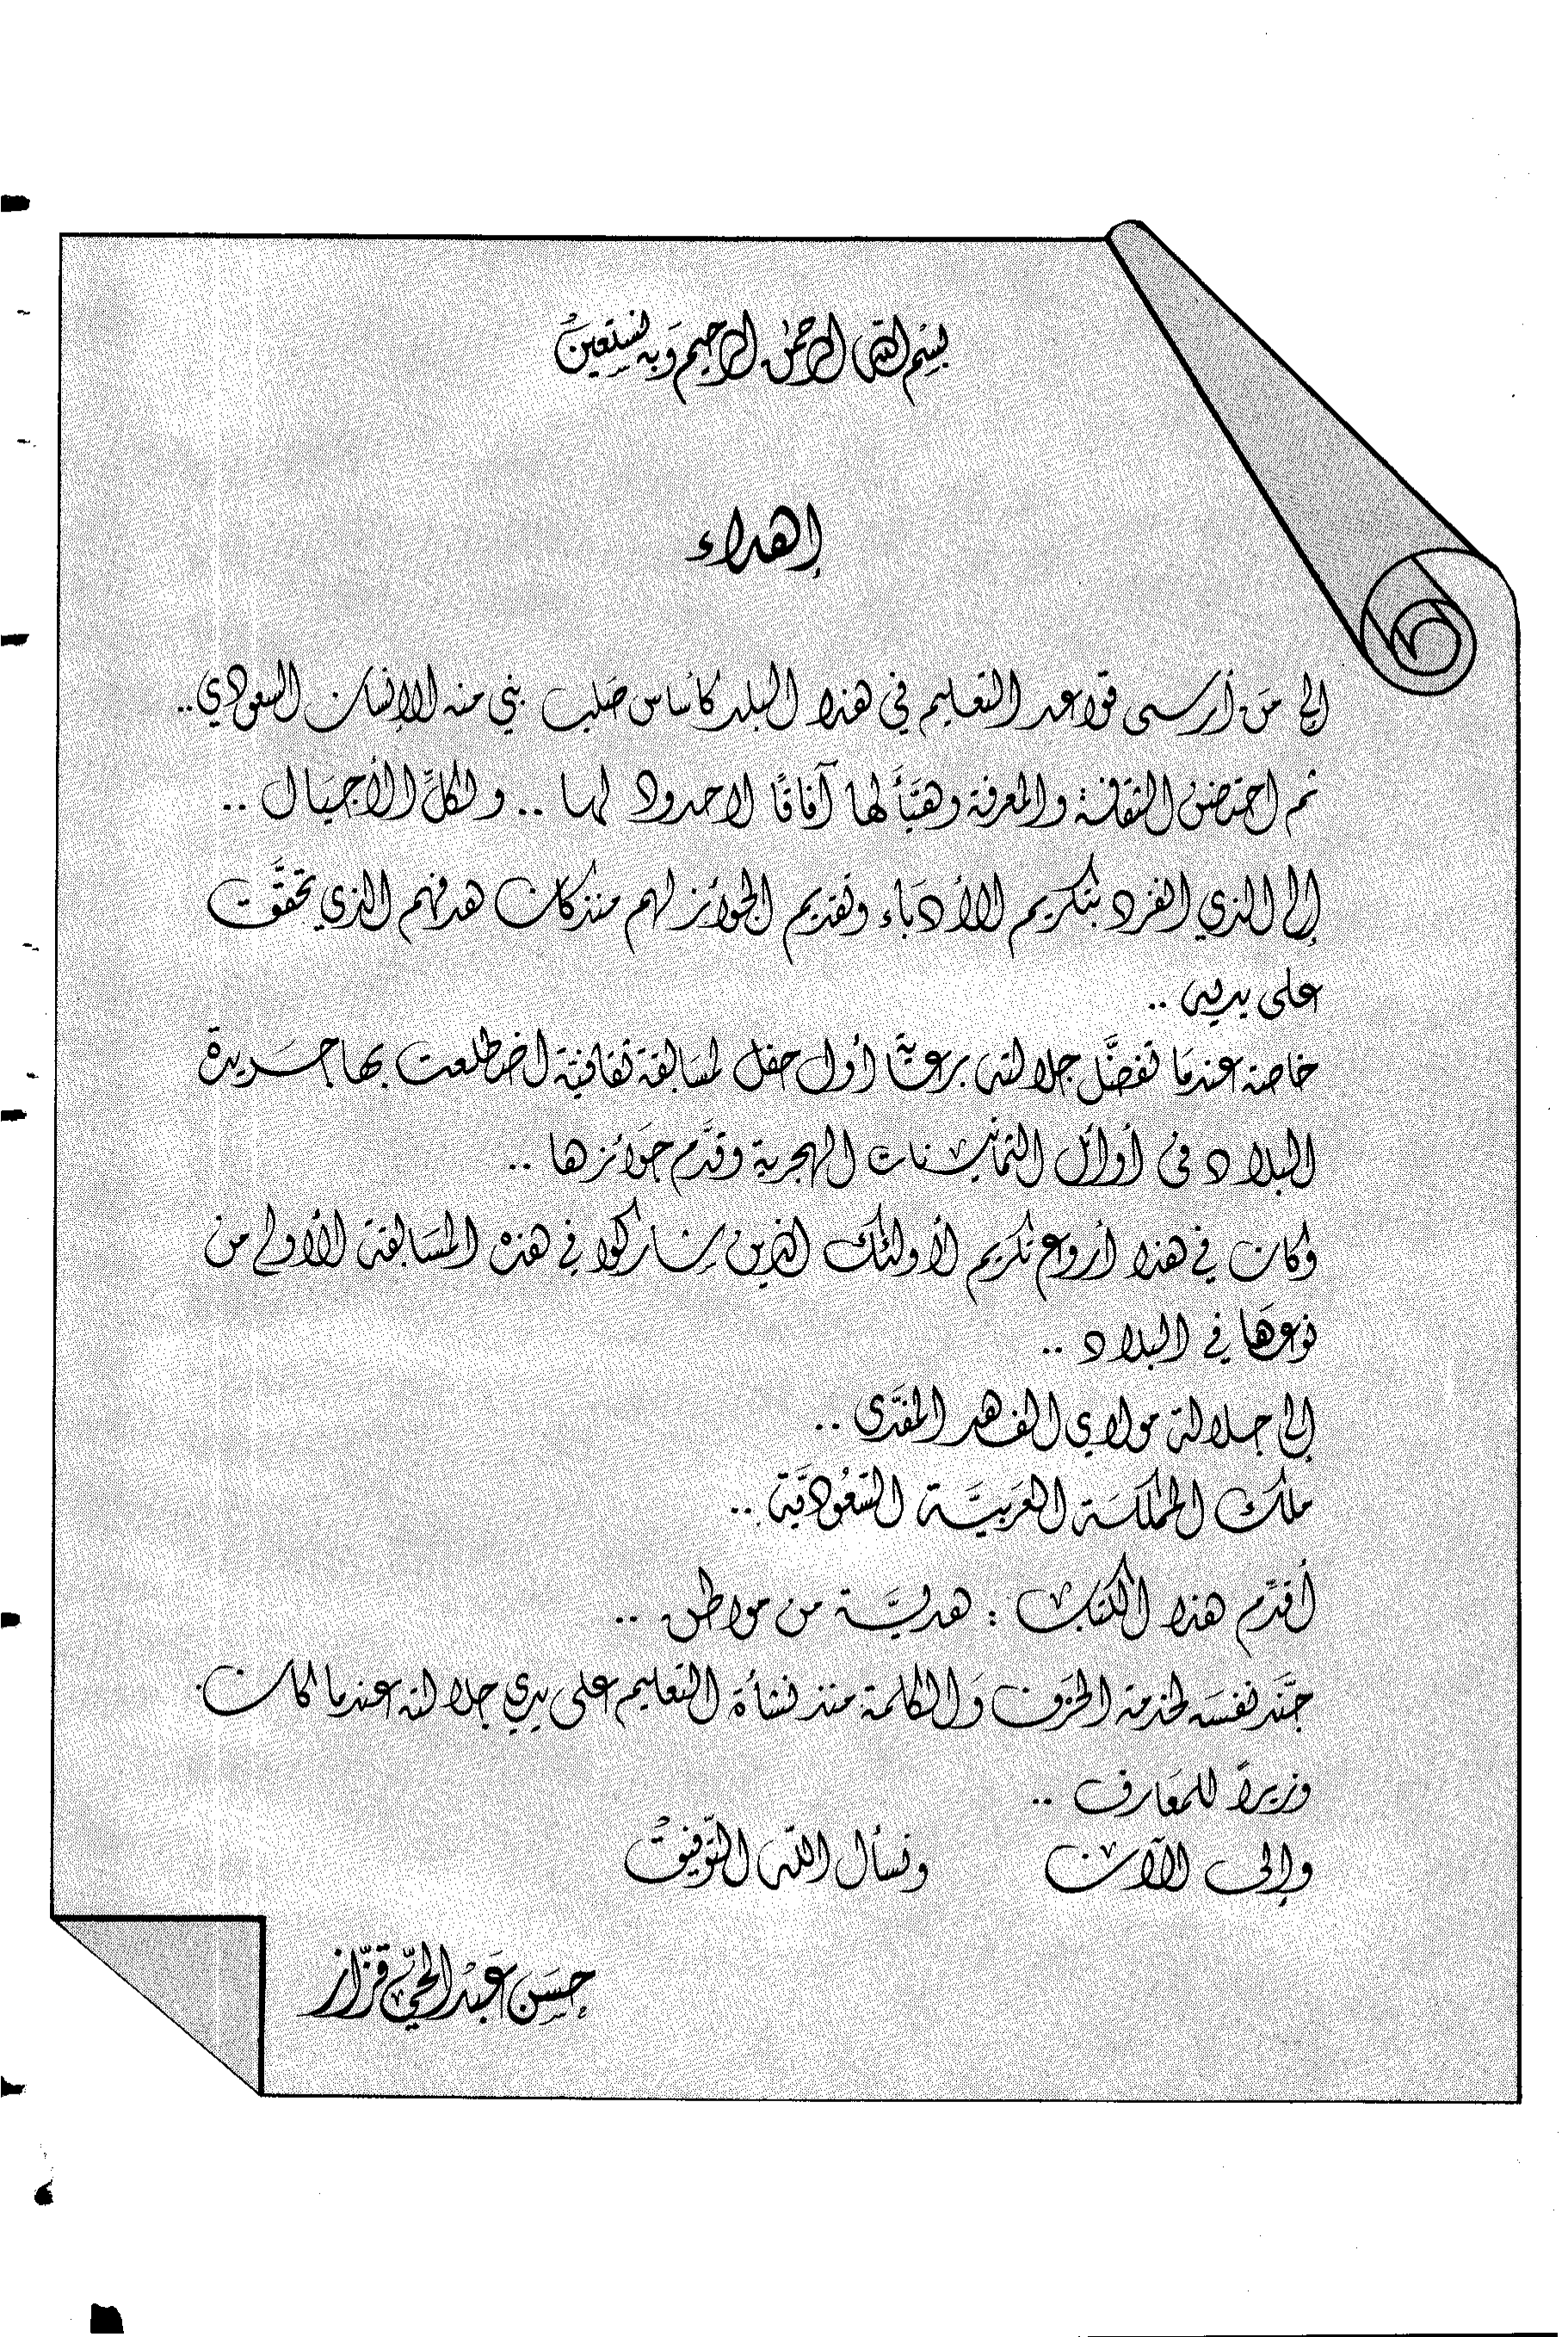 بسم الله الرحمن الرحيم وبه نستعين
إهداء
إلى من أرسى قواعد التعليم في هذا البلد كأساس صلب بني منه الإنسان السعودي..
ثم احتضن الثقافة والمعرفة وهيَّأ لها آفاقًا لا حدود لها .. ولكلِّ الأجيال ..
إلى الذي انفرد بتكريم الأدباء وتقديم الجوائز لهم منذ كان هدفهم الذي تحقَّق
على يديه ..
خاصة عندما تفضَّل جلالته برعاية أول حفل لمسابقة ثقافية اضطلعت بها جريدة
البلاد في أوائل الثمانينات الهجرية وقدَّم جوائزها ..
وكان في هذا أروع تكريم لأولئك الذين شاركوا في هذه المسابقة الأولى من
نوعها في البلاد ..
إلى جلالة مولاي الفهد المفدَّى ..
ملك المملكة العربيَّة السعُوديَّة ..
أقدِّم هذا الكتاب : هديَّة من مواطن ..
جنَّد نفسه لخدمة الحرف والكلمة منذ نشأة التعليم على يدي جلالته عندما كان
وزيراً للمعارف ..
وإلى الآن ونسأل الله التَّوفيق
حسن عبد الحيّ قزّاز